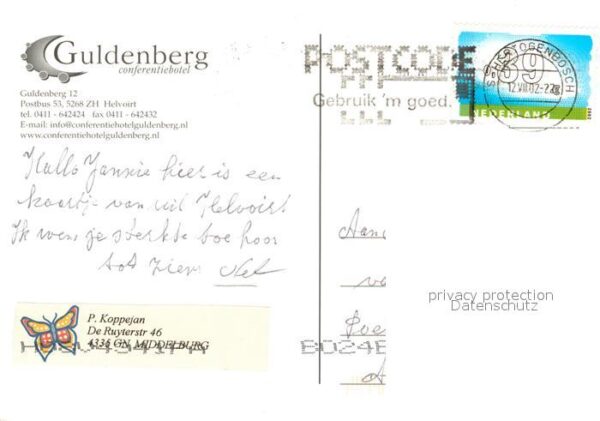 Guldenberg
conferentiehotel
Guldenberg 12
Postbus 53, 5268 ZH Helvoirt
tel. 0411 - 642424 fax 0411 - 642432
E-mail: info@conferentiehotelguldenberg.nl
www.conferentiehotelguldenberg.nl
Hallo Jannie hier is een
kaartje van uit Helvoirt
Ik wens je sterkte toe hoor
tot ziens
P. Koppejan
De Ruyterstr 46
4335 GN MIDDELBURG
POSTCODE
Gebruik 'm goed.
'S-HERTOGENBOSCH
39
12.VII.02-22
NEDERLAND
Aan
privacy protection
Datenschutz